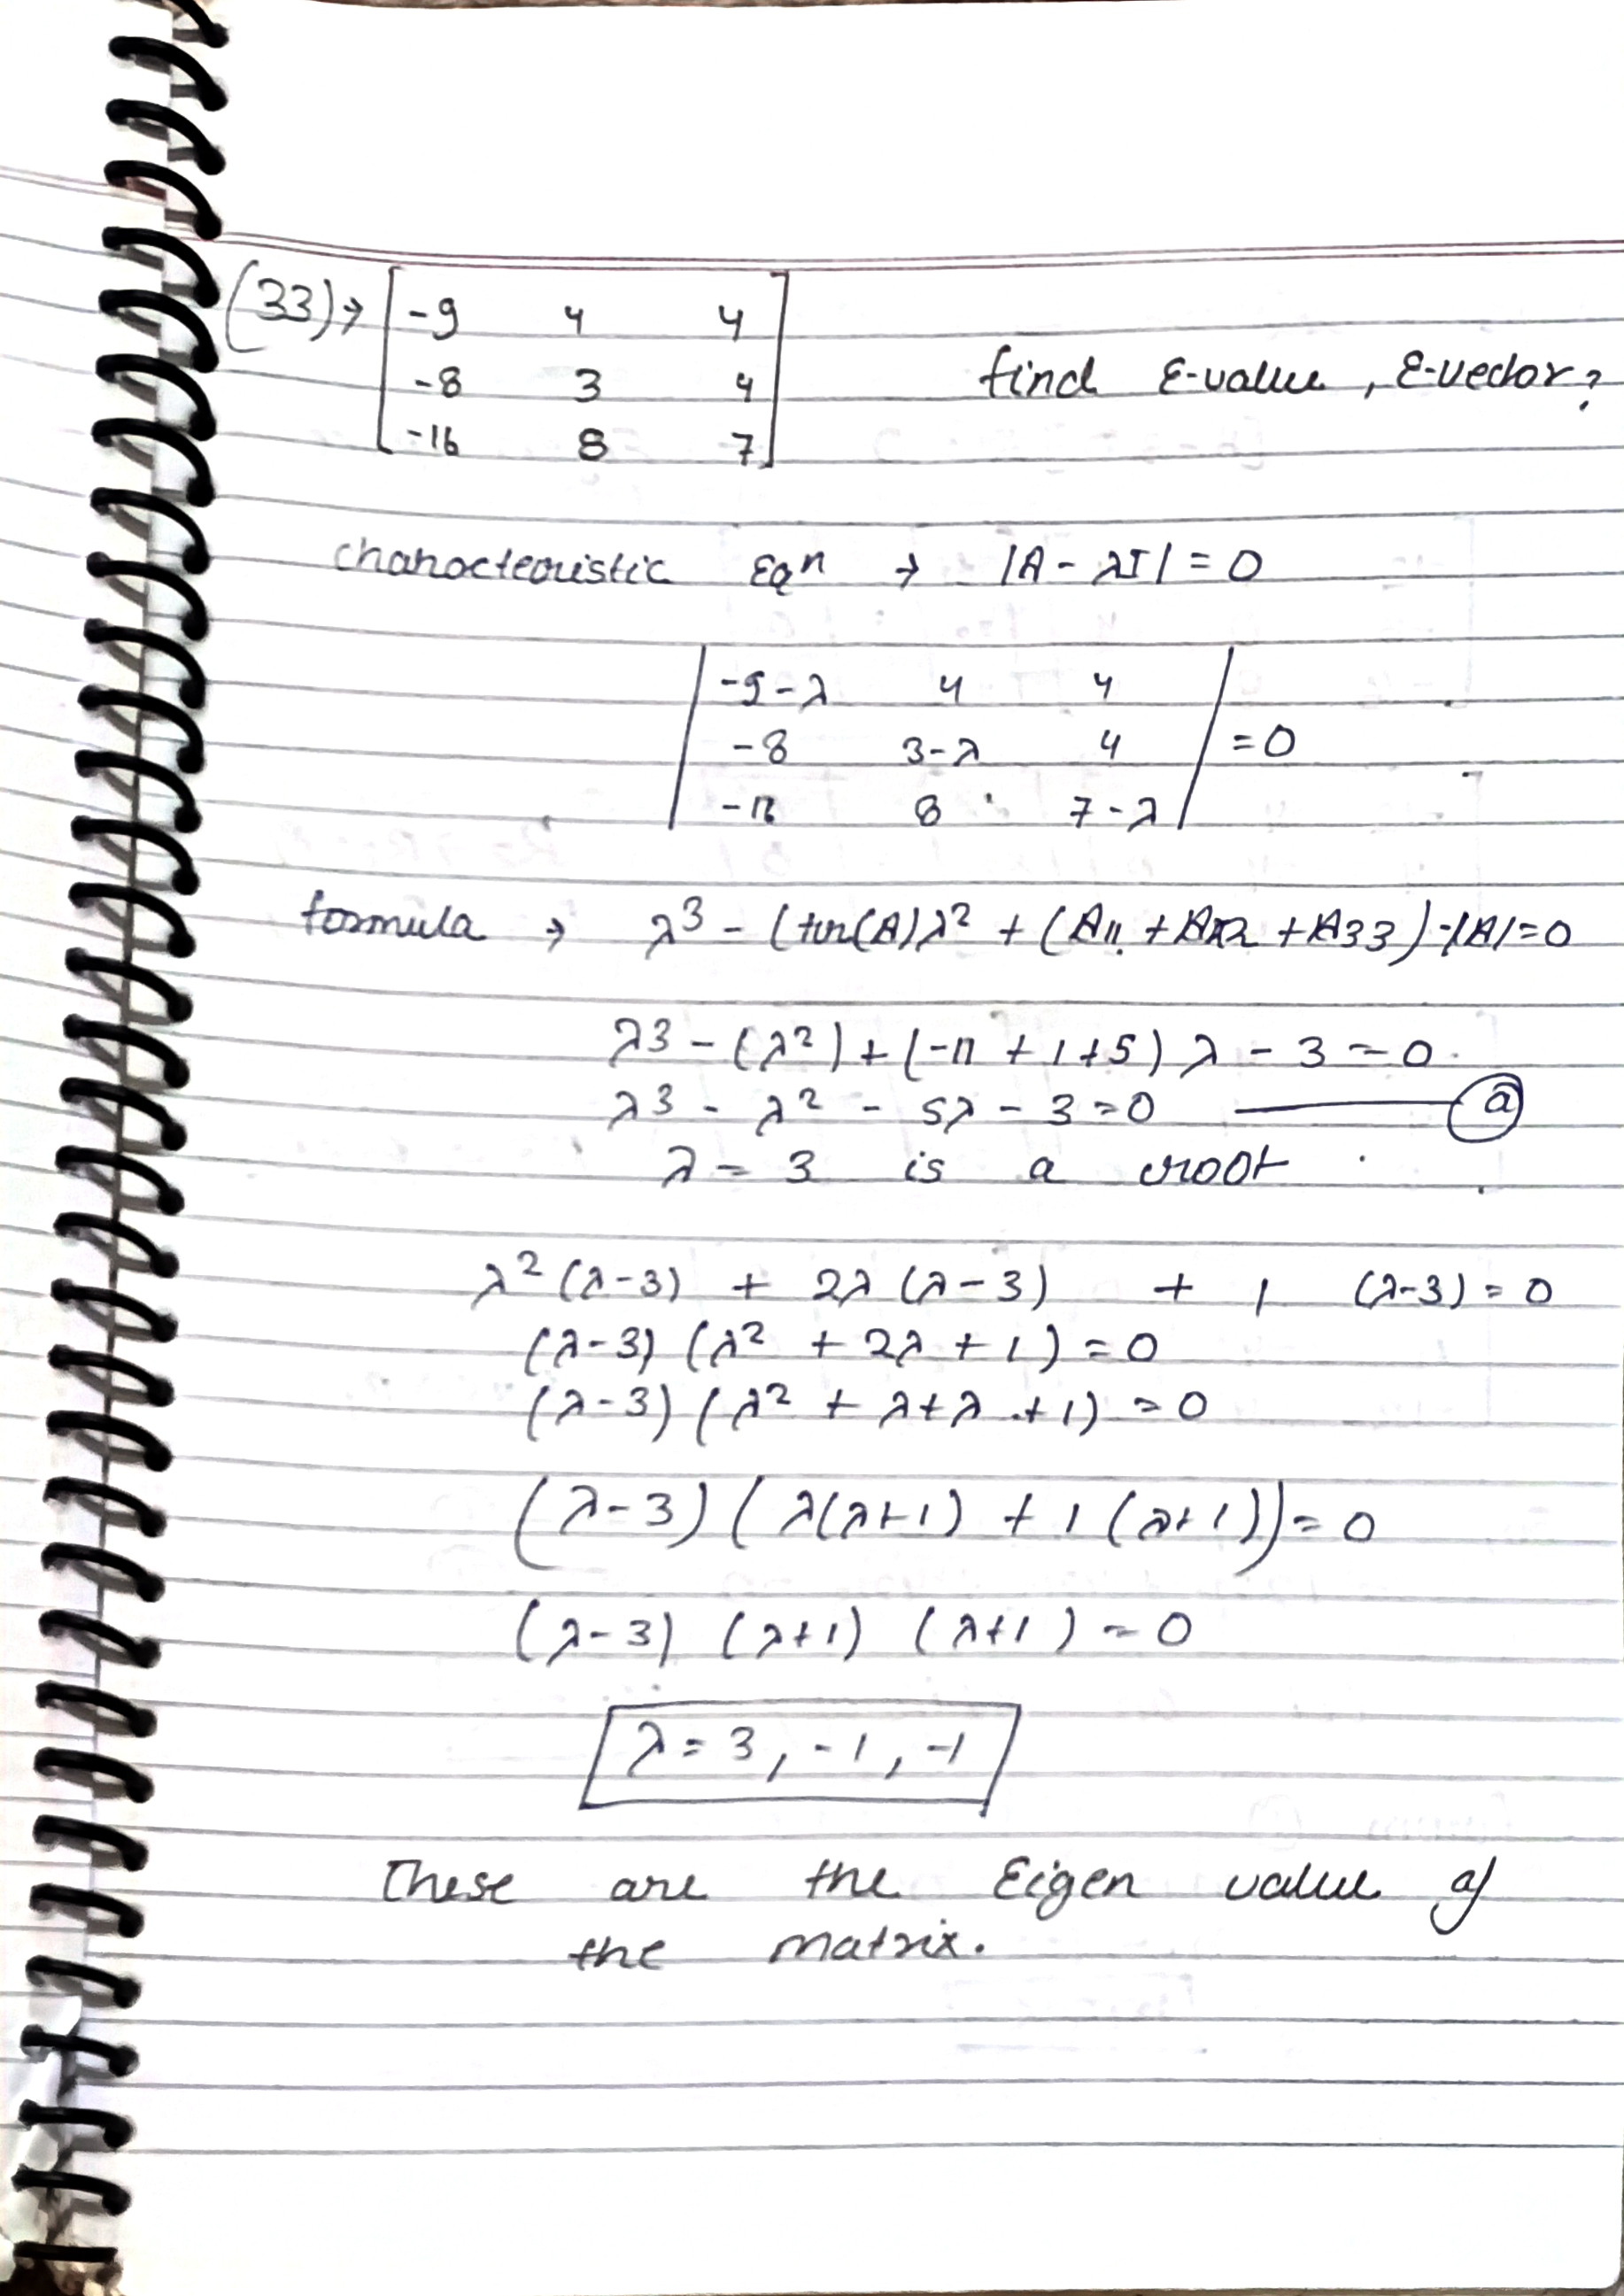 (33)→ [ -9 4 4
-8 3 4 find E-value, E-vector?
-16 8 7 ]
charocteristic Eqⁿ → |A - λI| = 0
| -9-λ 4 4 |
| -8 3-λ 4 | = 0
| -16 8 7-λ |
formula → λ³ - (tr(A)λ² + (A11 + A22 + A33) -|A| = 0
λ³ - (λ²) + (-11 + 1 + 5) λ - 3 = 0
λ³ - λ² - 5λ - 3 = 0 ——— (a)
λ = 3 is a root
λ² (λ-3) + 2λ (λ-3) + 1 (λ-3) = 0
(λ-3) (λ² + 2λ + 1) = 0
(λ-3) (λ² + λ + λ + 1) = 0
(λ-3) ( λ(λ+1) + 1 (λ+1)) = 0
(λ-3) (λ+1) (λ+1) = 0
λ = 3, -1, -1
These are the Eigen value of
the matrix.